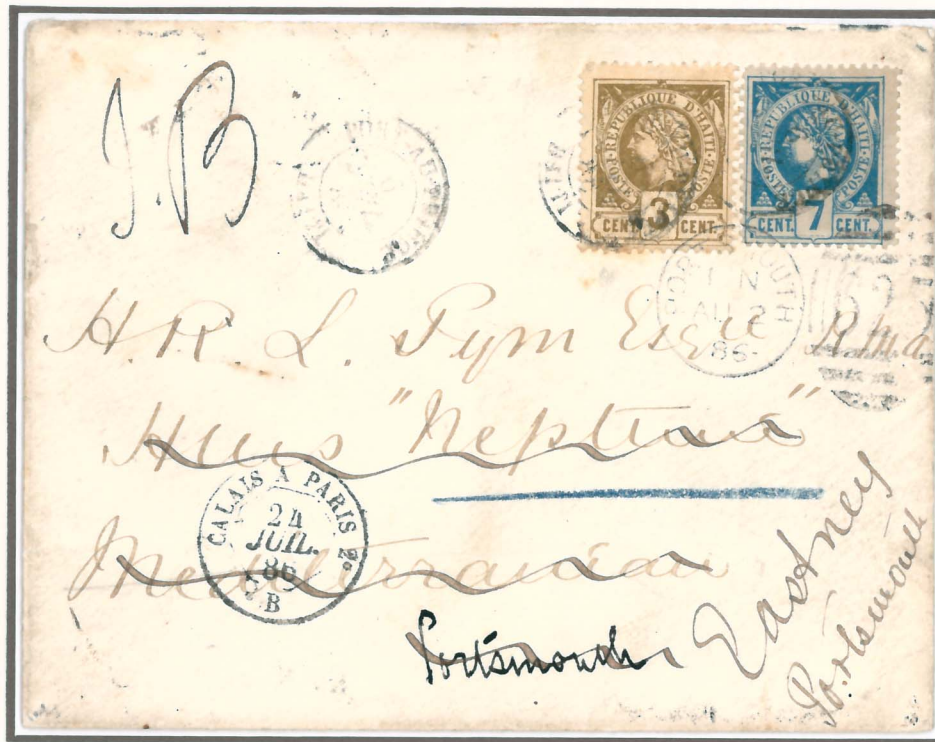 J.B
REPUBLIQUE D'HAITI
POSTE POSTE
CENT. 3 CENT.
REPUBLIQUE D'HAITI
POSTE POSTE
CENT. 7 CENT.
PORTSMOUTH
1 N
AU 2
86
H.R. L. Pym Esqre R.M.A
HMS "Neptune"
CALAIS A PARIS 2°
24
JUIL.
86
B
Mediterranean
Portsmouth
Eastney
Portsmouth